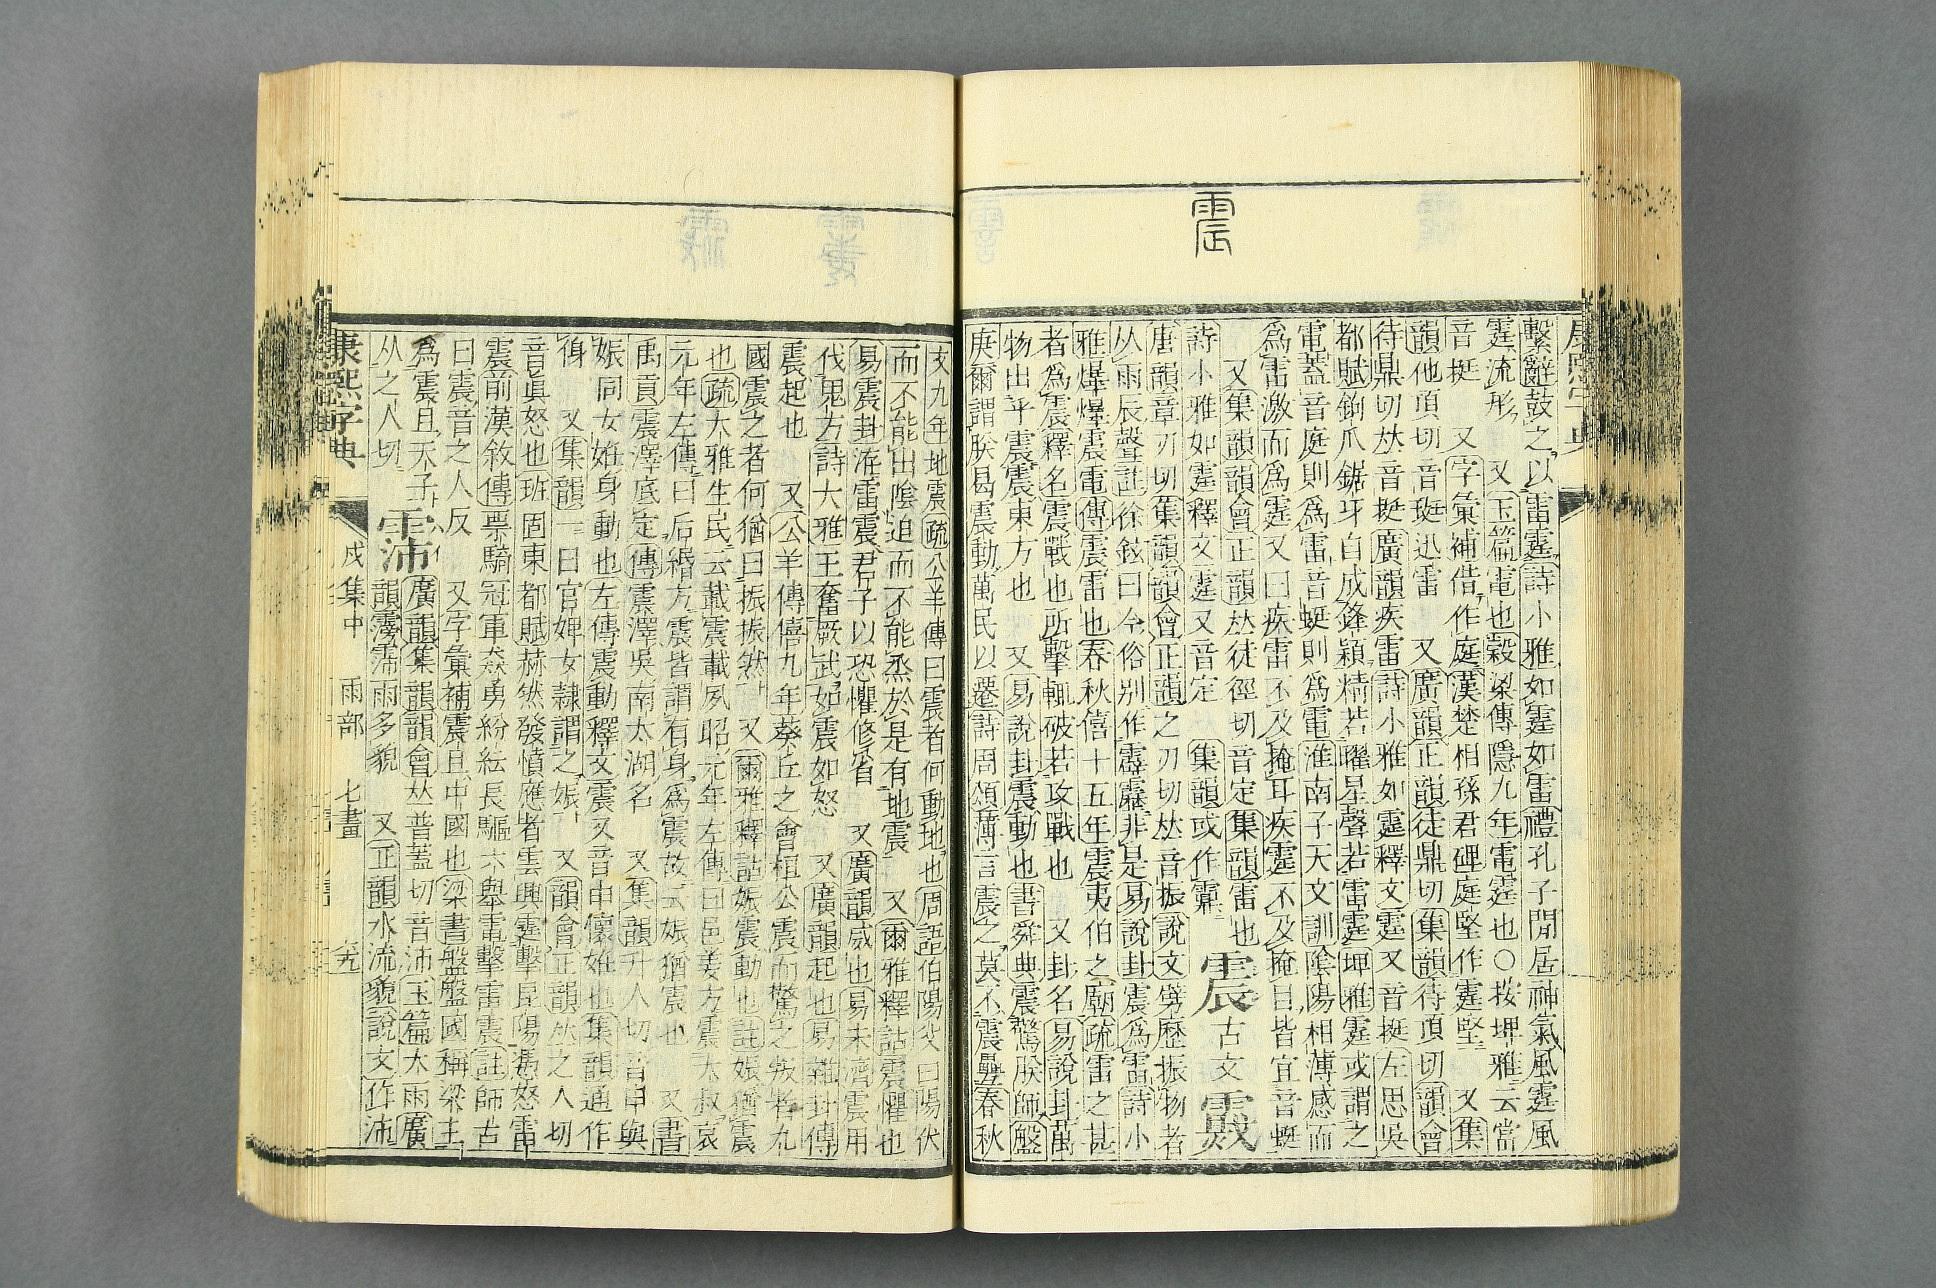 震
繫辭鼓之以雷霆詩小雅如霆如雷禮孔子閒居神氣風霆風
霆流形 又玉篇電也穀梁傳隱九年電霆也○按埤雅云當
音挺 又字彙補借作庭漢楚相孫君碑庭堅作霆堅 又集
韻他頂切音珽迅雷 又廣韻正韻徒鼎切集韻待頂切韻會
待鼎切𠀤音挺廣韻疾雷詩小雅如霆釋文霆又音挺左思吳
都賦鉤爪鋸牙自成鋒穎精若曜星聲若雷霆埤雅霆或謂之
電蓋音庭則爲雷音蜓則爲電淮南子天文訓陰陽相薄感而
爲雷激而爲霆又曰疾雷不及掩耳疾霆不及掩目皆宜音蜓
又集韻韻會正韻𠀤徒徑切音定集韻雷也 震古文𩇒
詩小雅如霆釋文霆又音定 集韻或作䨓
唐韻章刃切集韻韻會正韻之刃切𠀤音振說文劈歷振物者
从雨辰聲註徐鉉曰今俗別作霹靂非是易說卦震爲雷詩小
雅爆爆震電傳震雷也春秋僖十五年震夷伯之廟疏雷之甚
者爲震釋名震戰也所擊輒破若攻戰也 又卦名易說卦萬
物出乎震震東方也 又易說卦震動也書舜典震驚朕師盤
庚爾謂朕曷震動萬民以遷詩周頌薄言震之莫不震疊春秋
文九年地震疏公羊傳曰震者何動地也周語伯陽父曰陽伏
而不能出陰迫而不能烝於是有地震 又爾雅釋詁震懼也
易震卦洊雷震君子以恐懼修省 又廣韻威也易未濟震用
伐鬼方詩大雅王奮厥武如震如怒 又廣韻起也易雜卦傳
震起也 又公羊傳僖九年葵丘之會桓公震而驚之叛者九
國震之者何猶曰振振然 又爾雅釋詁娠震動也註娠猶震
也疏大雅生民云載震載夙昭元年左傳曰邑姜方震大叔哀
元年左傳曰后緡方震皆謂有身爲震故云娠猶震也 又書
禹貢震澤底定傳震澤吳南太湖名 又集韻升人切音申與
娠同女妊身動也左傳震動釋文震又音申懷妊也集韻通作
㑗 又集韻一曰官婢女隸謂之娠 又韻會正韻𠀤之人切
音眞怒也班固東都賦赫然發憤應者雲興霆擊昆陽馮怒雷
震前漢敘傳票騎冠軍猋勇紛紜長驅六舉電擊雷震註師古
曰震音之人反 又字彙補震旦中國也梁書盤盤國稱梁主
爲震旦天子 霈廣韻集韻韻會𠀤普蓋切音沛玉篇大雨廣
从之人切 韻霶霈雨多貌 又正韻水流貌說文作沛
康熙字典 戌集中 雨部 七畫